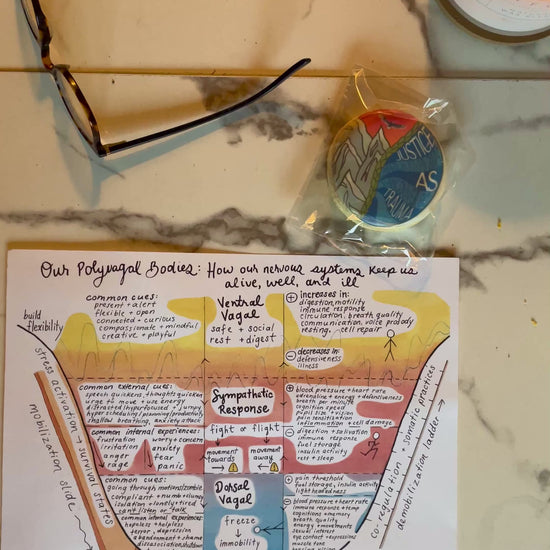 JUSTICE
AS
TRAUMA
Our Polyvagal Bodies: How our nervous systems keep us
alive, well, and ill
build
flexibility
common cues:
present + alert
flexible + open
connected + curious
compassionate + mindful
creative + playful
Ventral
Vagal
safe + social
rest + digest
+ increases in:
digestion, motility
immune response
circulation, breath quality
communication, voice prosody
resting, cell repair
- decreases in:
defensiveness
illness
stress activation → survival states
mobilization slide
common external cues:
speech quickens, thoughts quicken
to move + use energy
distracted/hyperfocused + jumpy
shallow breathing, anxiety attack
common internal experiences:
frustration
irritation
anger
rage
worry + concern
anxiety
fear
panic
Sympathetic
Response
fight or flight
movement
towards
movement
away
+ blood pressure + heart rate
adrenaline + energy + defensiveness
breath per minute
cognition speed
pupil size + vision
pain sensitization
inflammation + cell damage
- digestion + salivation
immune response
fuel storage
insulin activity
rest + sleep
common cues:
going through motions/zombie
compliant + numb + clumsy
isolation + lonely/tired
can't listen or talk
common internal experiences:
hopeless + helpless
terror, depression
abandonment + shame
dissociation
Dorsal
Vagal
freeze
or
immobility
+ pain threshold
fuel storage, insulin activity
lightheadedness
- blood pressure + heart rate
immune response + temp
cognitions + memory
breath quality
energy + movements
sexual interest
eye contact + expressions
muscle tone
co-regulation + somatic practices
demobilization ladder →